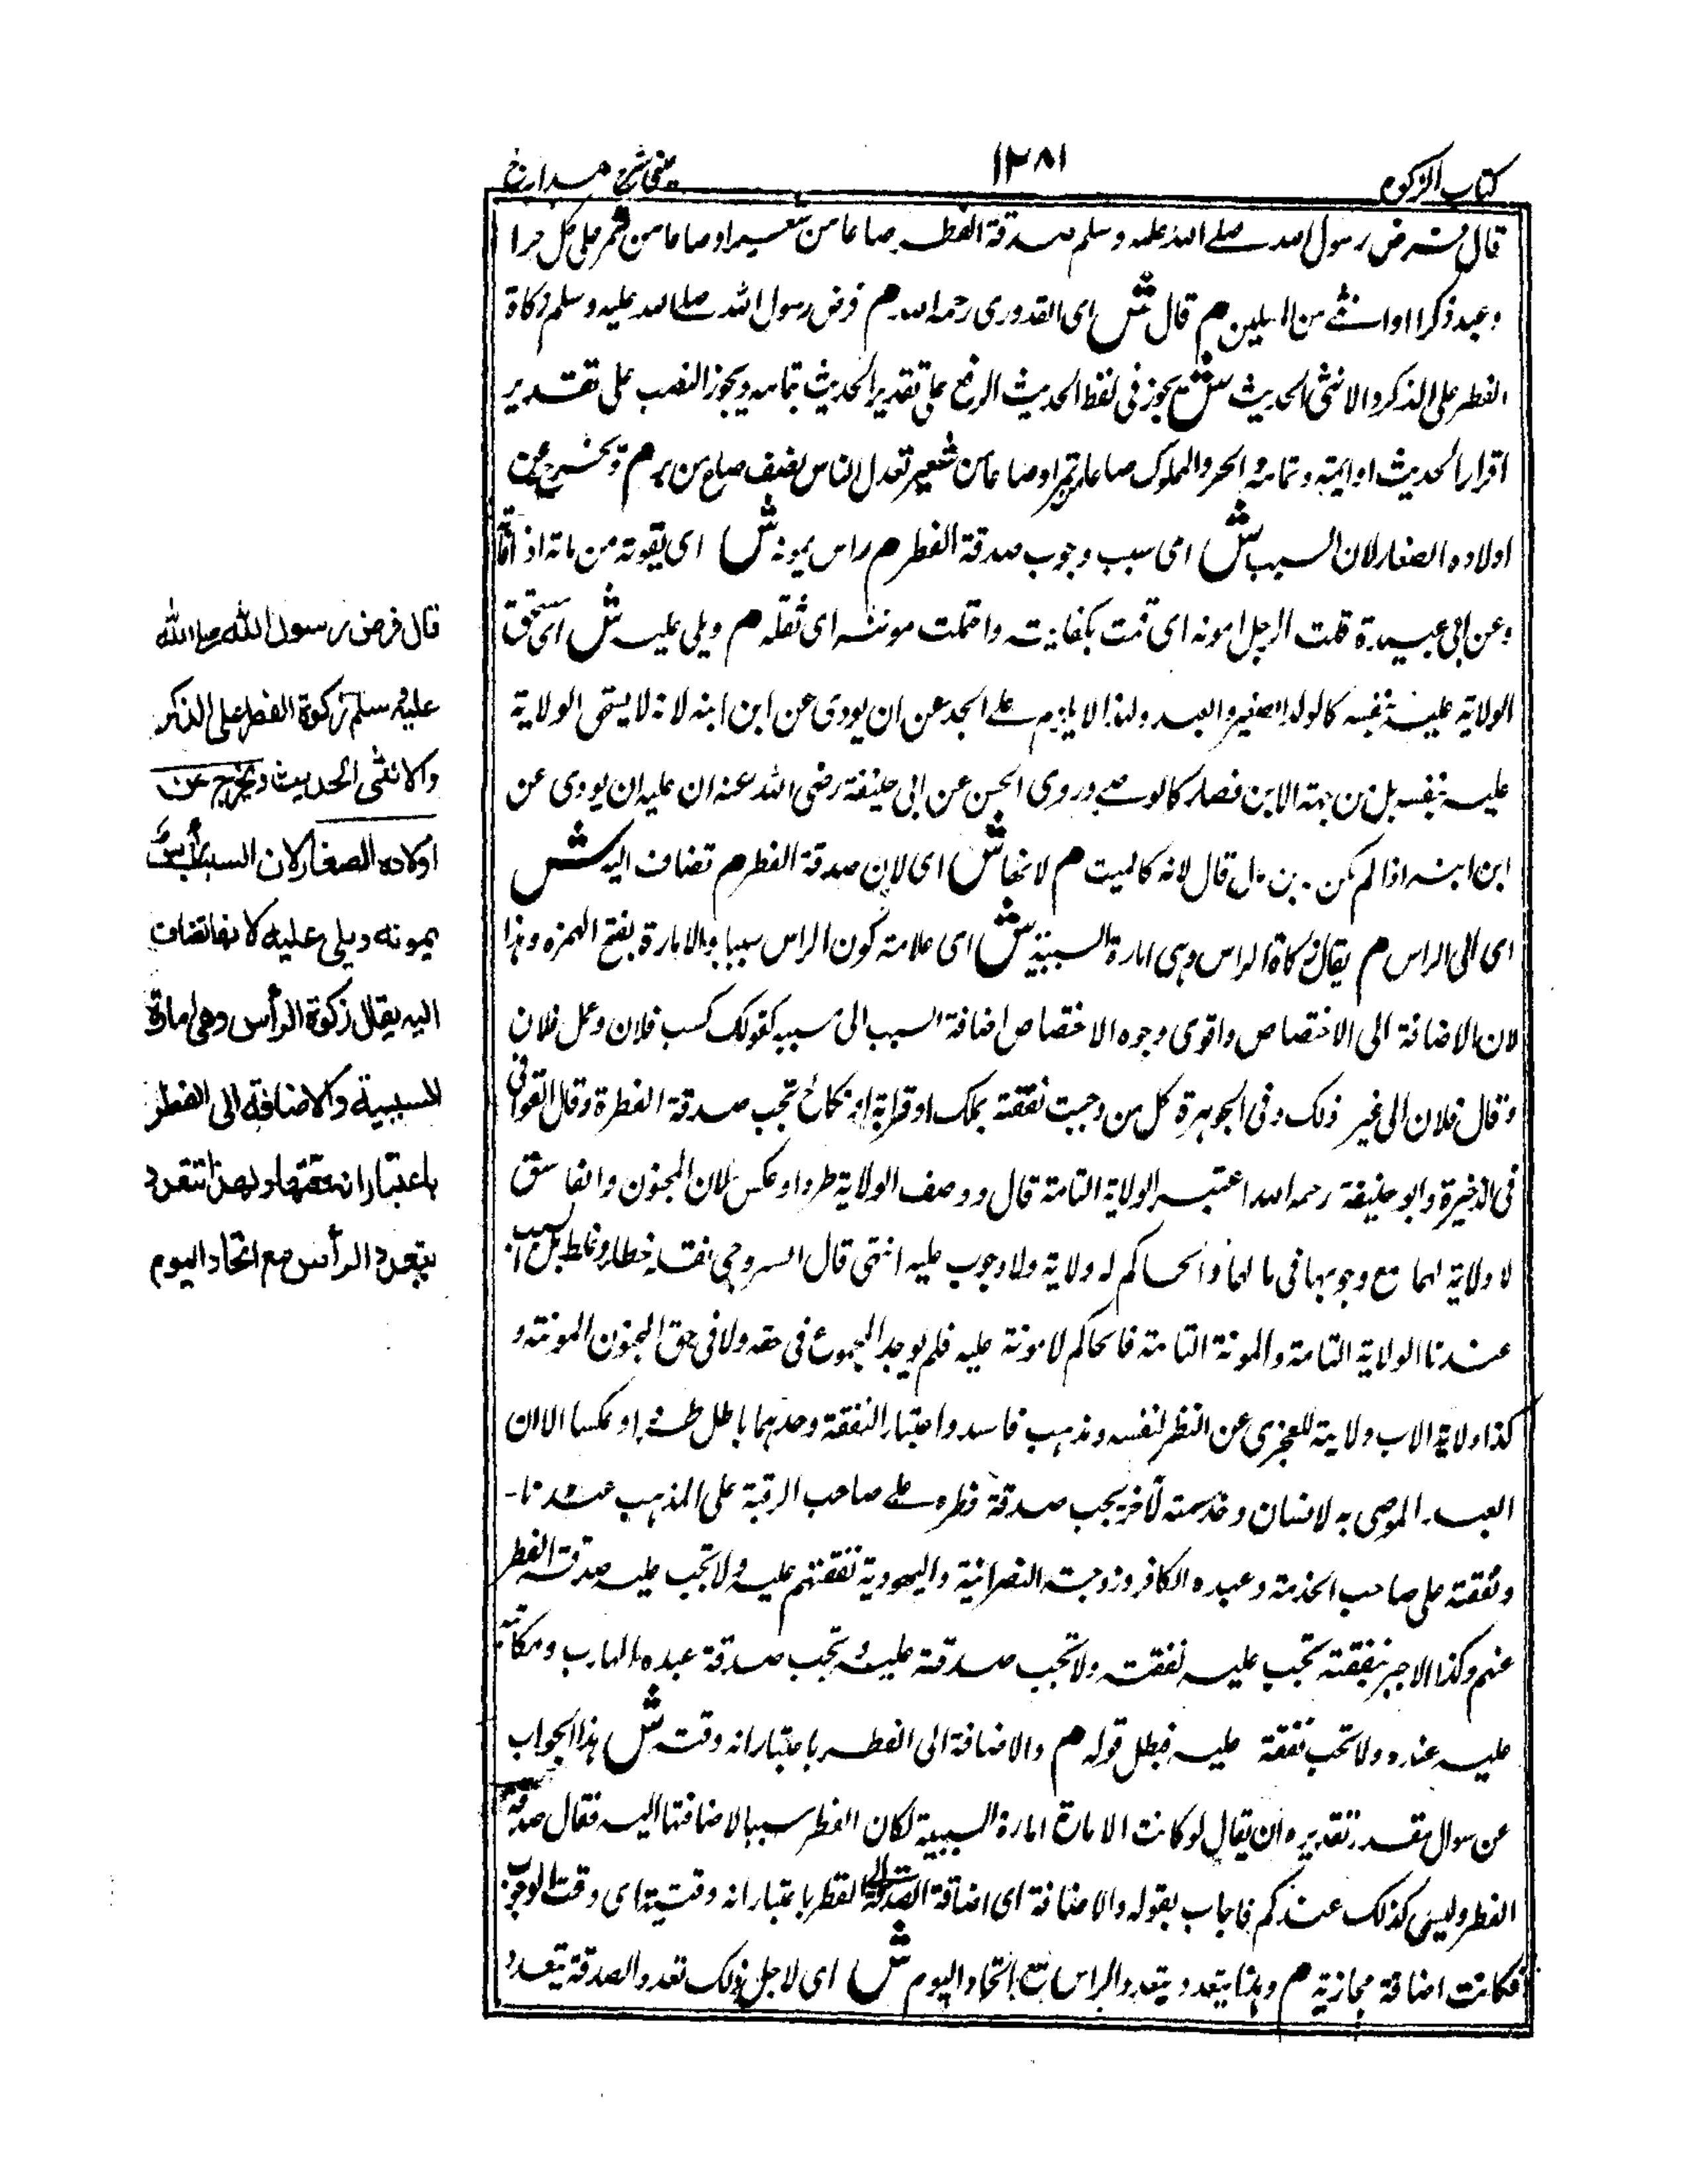 كتاب الزكوة
١٢٨١
عينى شرح هدايه ج
قال فرض رسول الله صلے الله عليه وسلم صدقة الفطر صاعا من شعير او صاعا من تمر على كل حر ا
و عبد ذكرا او انثے من المسلمين م قال ش اى القدورى رحمه الله م فرض رسول الله صلے الله عليه وسلم زكاة
الفطر على الذكر والانثى الحديث ش يجوز فى لفظ الحديث الرفع على تقدير الحديث بتمامه ويجوز النصب على تقدير
اقرار الحديث او اتمه وتمامه والحر والمملوك صاعا من تمر او صاعا من شعير فعدل الناس نصف صاع من بر م ويخرج عن
اولاده الصغار لان السبب ش اى سبب وجوب صدقة الفطر م راس يمونه ش اى يقوته من مانه اذا قاته
وعن ابى عبيدة قلت الرجل امونه اى قمت بكفايته واحتملت مونته اى ثقله م ويلى عليه ش اى يستحق
الولاية عليه بنفسه كالولد الصغير والعبد ولهذا لا يلزم على الجد عن ان يودى عن ابن ابنه لانه لا يستحق الولاية
عليه بنفسه بل من جهة الابن فصار كالوصے وروى الحسن عن ابى حنيفة رضى الله عنه ان عليه ان يودى عن
ابن ابنه اذا لم يكن قال لانه كالميت م لانها ش اى لان صدقة الفطر م تضاف اليه ش
اى الى الراس م يقال زكاة الراس وهى امارة السببية ش اى علامة كون الراس سببا والامارة بفتح الهمزه وهذا
لان الاضافة الى الاختصاص واقوى وجوه الاختصاص اضافة السبب الى مسببه كقولك كسب فلان وعمل فلان
وقال فلان الى غير ذلك وفى الجوهرة كل من وجبت نفقته بملك او قرابة او نكاح تجب صدقة الفطرة وقال القرافى
فى الذخيرة وابو حنيفة رحمه الله اعتبر الولاية التامة قال ووصف الولاية طردا وعكس لان المجنون والفاسق
لا ولاية لهما مع وجوبها فى مالهما والحاكم له ولاية ولا وجوب عليه انتهى قال السروجى نقله خطاء وغلط بل السبب
عندنا الولاية التامة والمونة التامة فالحاكم لا مونة عليه فلم يوجد المجموع فى حقه ولا فى حق المجنون المونة و
كذا ولاية الاب ولايته للعجزى عن النظر لنفسه ومذهب فاسد واعتبار النفقة وحدهما باطل طردا وعكسا الا ان
العبد الموصى به لانسان وخدمته لآخر يجب صدقة فطره على صاحب الرقبة على المذهب عندنا
ونفقته على صاحب الخدمة وعبده الكافر وزوجته النصرانية واليهودية نفقتهم عليه ولا تجب عليه صدقة الفطر
عنهم وكذا الاجير بنفقته تجب عليه نفقته ولا تجب صدقته عليه وتجب صدقة عبده الهارب ومكاتبه
عليه عنده ولا تجب نفقة عليه فبطل قوله م والاضافة الى الفطر باعتبار انه وقته ش هذا الجواب
عن سوال مقدر تقديره ان يقال لو كانت الامارة امارة السببية لكان الفطر سببا لاضافتها اليه فقال صدقة
الفطر وليس كذلك عندكم فاجاب بقوله والاضافة اى اضافة الصدقة الى الفطر باعتبار انه وقتية اى وقت الوجوب
فكانت اضافة مجازية م ولهذا يتعدد بتعدد الراس مع اتحاد اليوم ش اى لاجل ذلك تعدد الصدقة يتعدد
قال فرض رسول الله صلى الله
عليه وسلم زكوة الفطر على الذكر
والانثى الحديث ويخرج عن
اولاده الصغار لان السبب رأس
يمونه ويلى عليه لانها تضاف
اليه يقال زكوة الرأس وهى امارة
للسببية والاضافة الى الفطر
باعتبار انه وقتها ولهذا تتعدد
بتعدد الرأس مع اتحاد اليوم